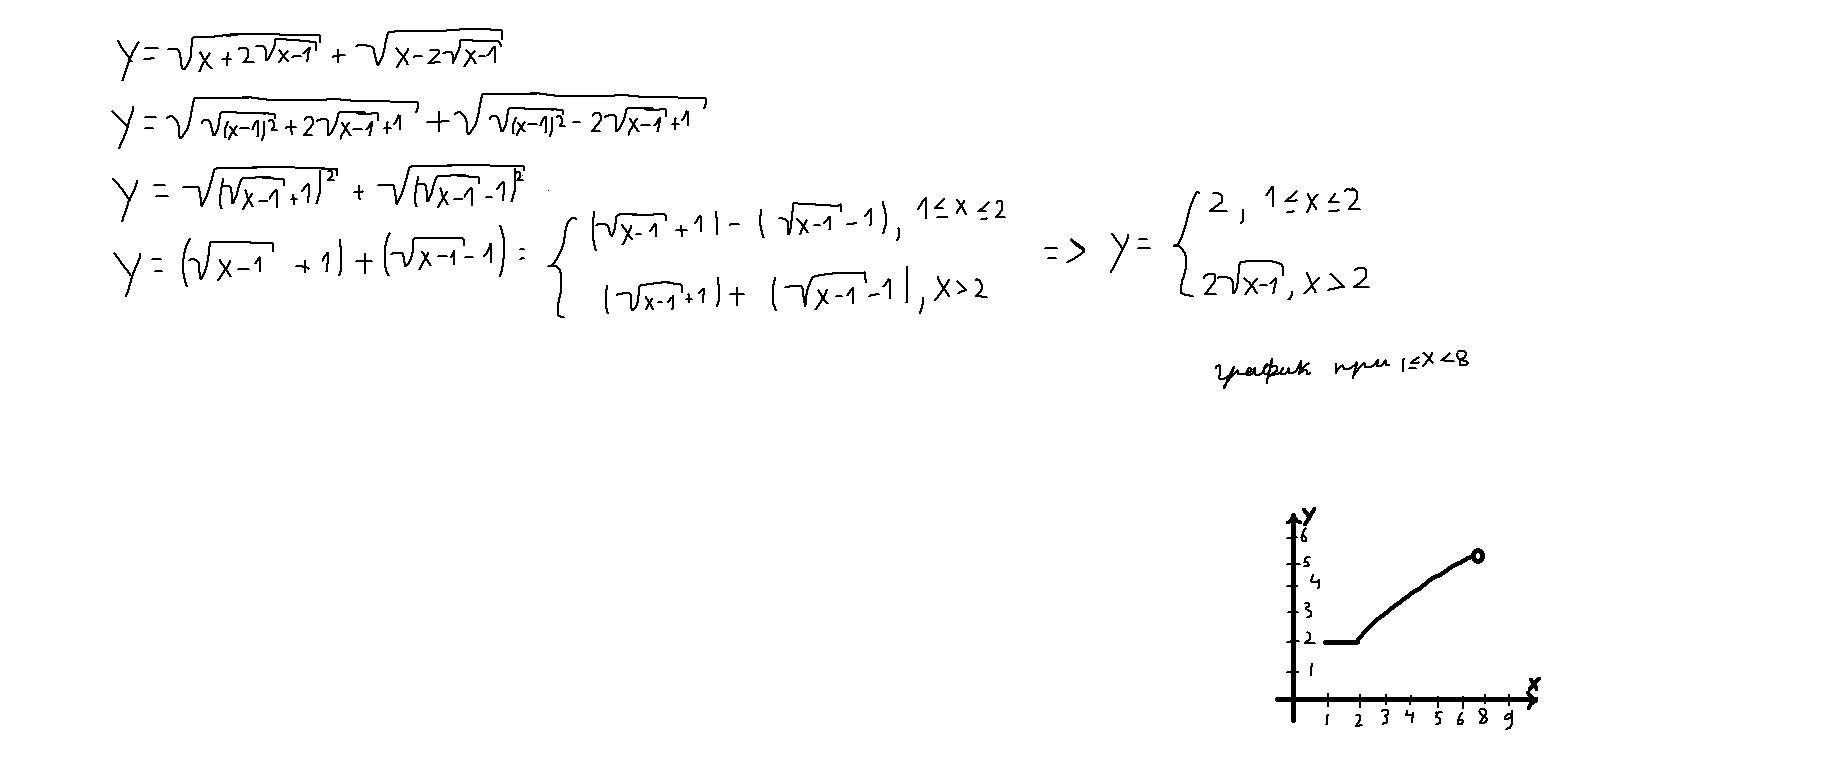 y=√(x+2√(x-1)) + √(x-2√(x-1))
y=√(√(x-1)²+2√(x-1)+1) + √(√(x-1)²-2√(x-1)+1)
y=√((√(x-1)+1)²) + √((√(x-1)-1)²)
y=(√(x-1)+1)+(√(x-1)-1)= { (√(x-1)+1)-(√(x-1)-1), 1≤x≤2
(√(x-1)+1)+(√(x-1)-1), x>2
=> y= { 2, 1≤x≤2
2√(x-1), x>2
график при 1≤x<8
y
6
5
4
3
2
1
x
1 2 3 4 5 6 8 9